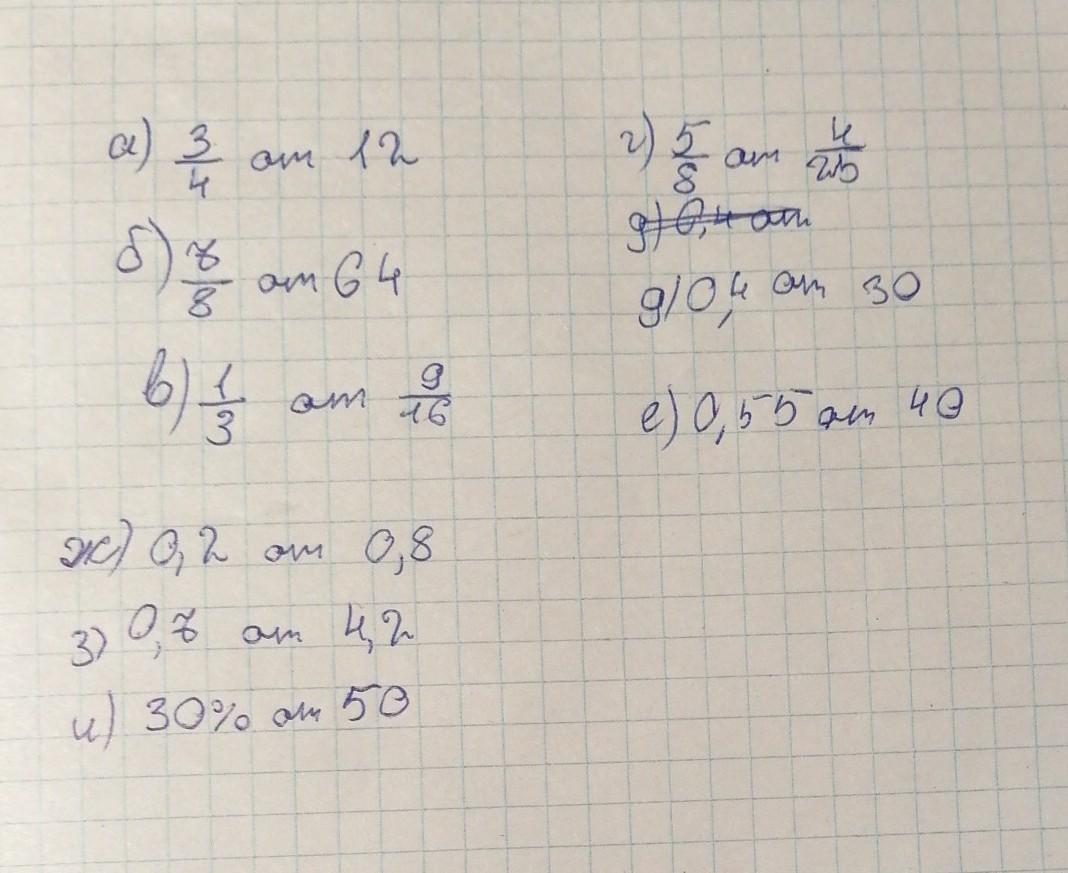 а) 3/4 от 12
б) 7/8 от 64
в) 1/3 от 9/16
г) 5/8 от 4/25
д) 0,4 от
д) 0,4 от 30
е) 0,55 от 40
ж) 0,2 от 0,8
з) 0,7 от 4,2
и) 30% от 50